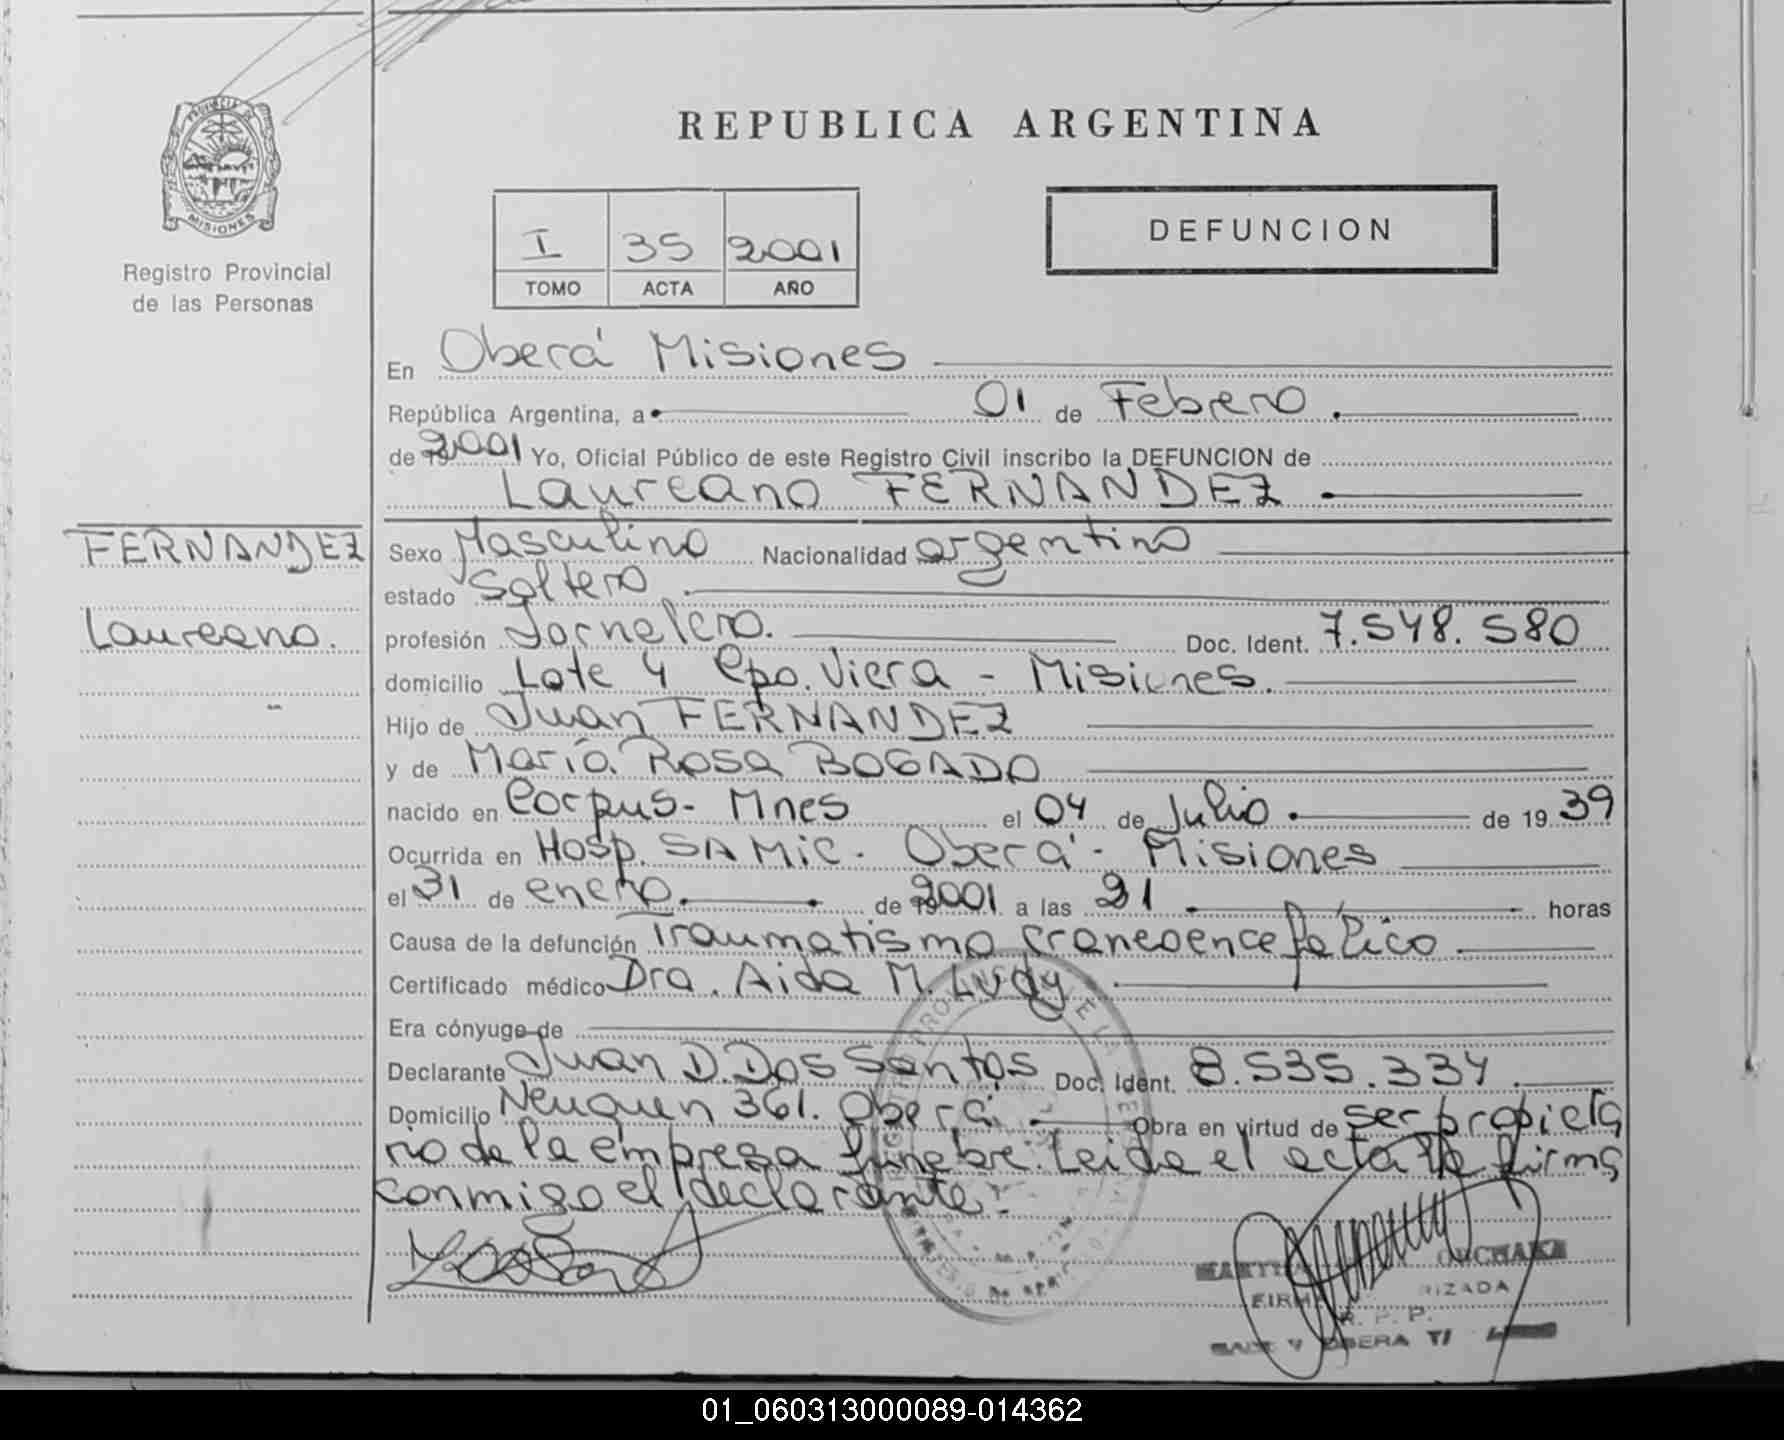 PROVINCIA DE
MISIONES
Registro Provincial
de las Personas
REPUBLICA ARGENTINA
I 35 2001
TOMO ACTA AÑO
DEFUNCION
En Oberá Misiones
República Argentina, a 01 de Febrero
de 2001 Yo, Oficial Público de este Registro Civil inscribo la DEFUNCION de
Laureano FERNANDEZ
FERNANDEZ
Laureano.
Sexo Masculino Nacionalidad argentino
estado Soltero
profesión Jornalero. Doc. Ident. 7.548.580
domicilio Lote 4 Cpo. Viera - Misiones.
Hijo de Juan FERNANDEZ
y de María Rosa BOGADO
nacido en Corpus- Mnes el 04 de Julio de 1939
Ocurrida en Hosp. SAMIC - Oberá - Misiones
el 31 de enero de 2001 a las 21 horas
Causa de la defunción Traumatismo craneoencefalico
Certificado médico Dra. Aida M.
Era cónyuge de
Declarante Juan D. Dos Santos Doc. Ident. 8.535.334
Domicilio Neuquen 361. Oberá Obra en virtud de ser propieta
rio de la empresa fúnebre. Leida el acta la firma
conmigo el declarante.
R. P. P.
OBERA
01_060313000089-014362